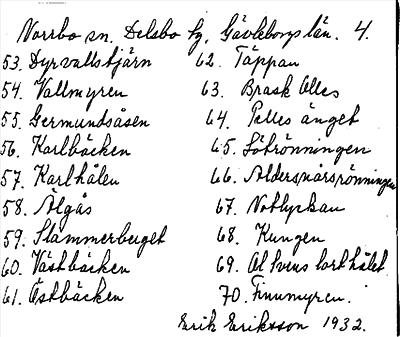 Norrbo sn. Delsbo tg. Gävleborgs län. 4.
53. Dyrvallstjärn
54. Vallmyren
55. Germundsåsen
56. Karlbäcken
57. Karlhålen
58. Älgås
59. Slammerberget
60. Västbäcken
61. Östbäcken
62. Täppan
63. Brask Olles
64. Pelles änget
65. Sörönningen
66. Åldersmårsrönningen
67. Notlyckan
68. Kungen
69. Ol Svens
70. Finnmyren.
Erik Eriksson 1932.